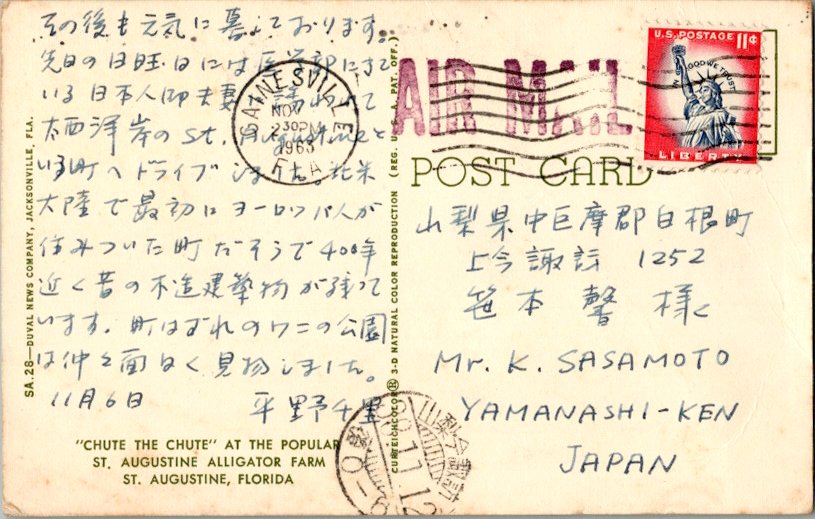 その後も元気に暮しております。
先日の日旺日には医学部にきて
いる日本人御夫妻 訪ねて
大西洋岸のSt. Augustineと
いう町へドライブしました。北米
大陸で最初にヨーロッパ人が
住みついた町だそうで400年
近く昔の木造建築物が残って
います。町はずれのワニの公園
は仲々面白く見物しました。
11月6日 平野千里
"CHUTE THE CHUTE" AT THE POPULAR
ST. AUGUSTINE ALLIGATOR FARM
ST. AUGUSTINE, FLORIDA
SA.28—DUVAL NEWS COMPANY, JACKSONVILLE, FLA.
CURTEICHCOLOR® 3-D NATURAL COLOR REPRODUCTION (REG. U.S.A. PAT. OFF.)
GAINESVILLE
NOV
230PM
1963
FLA
AIR MAIL
U.S. POSTAGE 11¢
IN GOD WE TRUST
LIBERTY
POST CARD
山梨県中巨摩郡白根町
上今諏訪 1252
笹本馨様
Mr. K. SASAMOTO
YAMANASHI-KEN
JAPAN
38.11.12